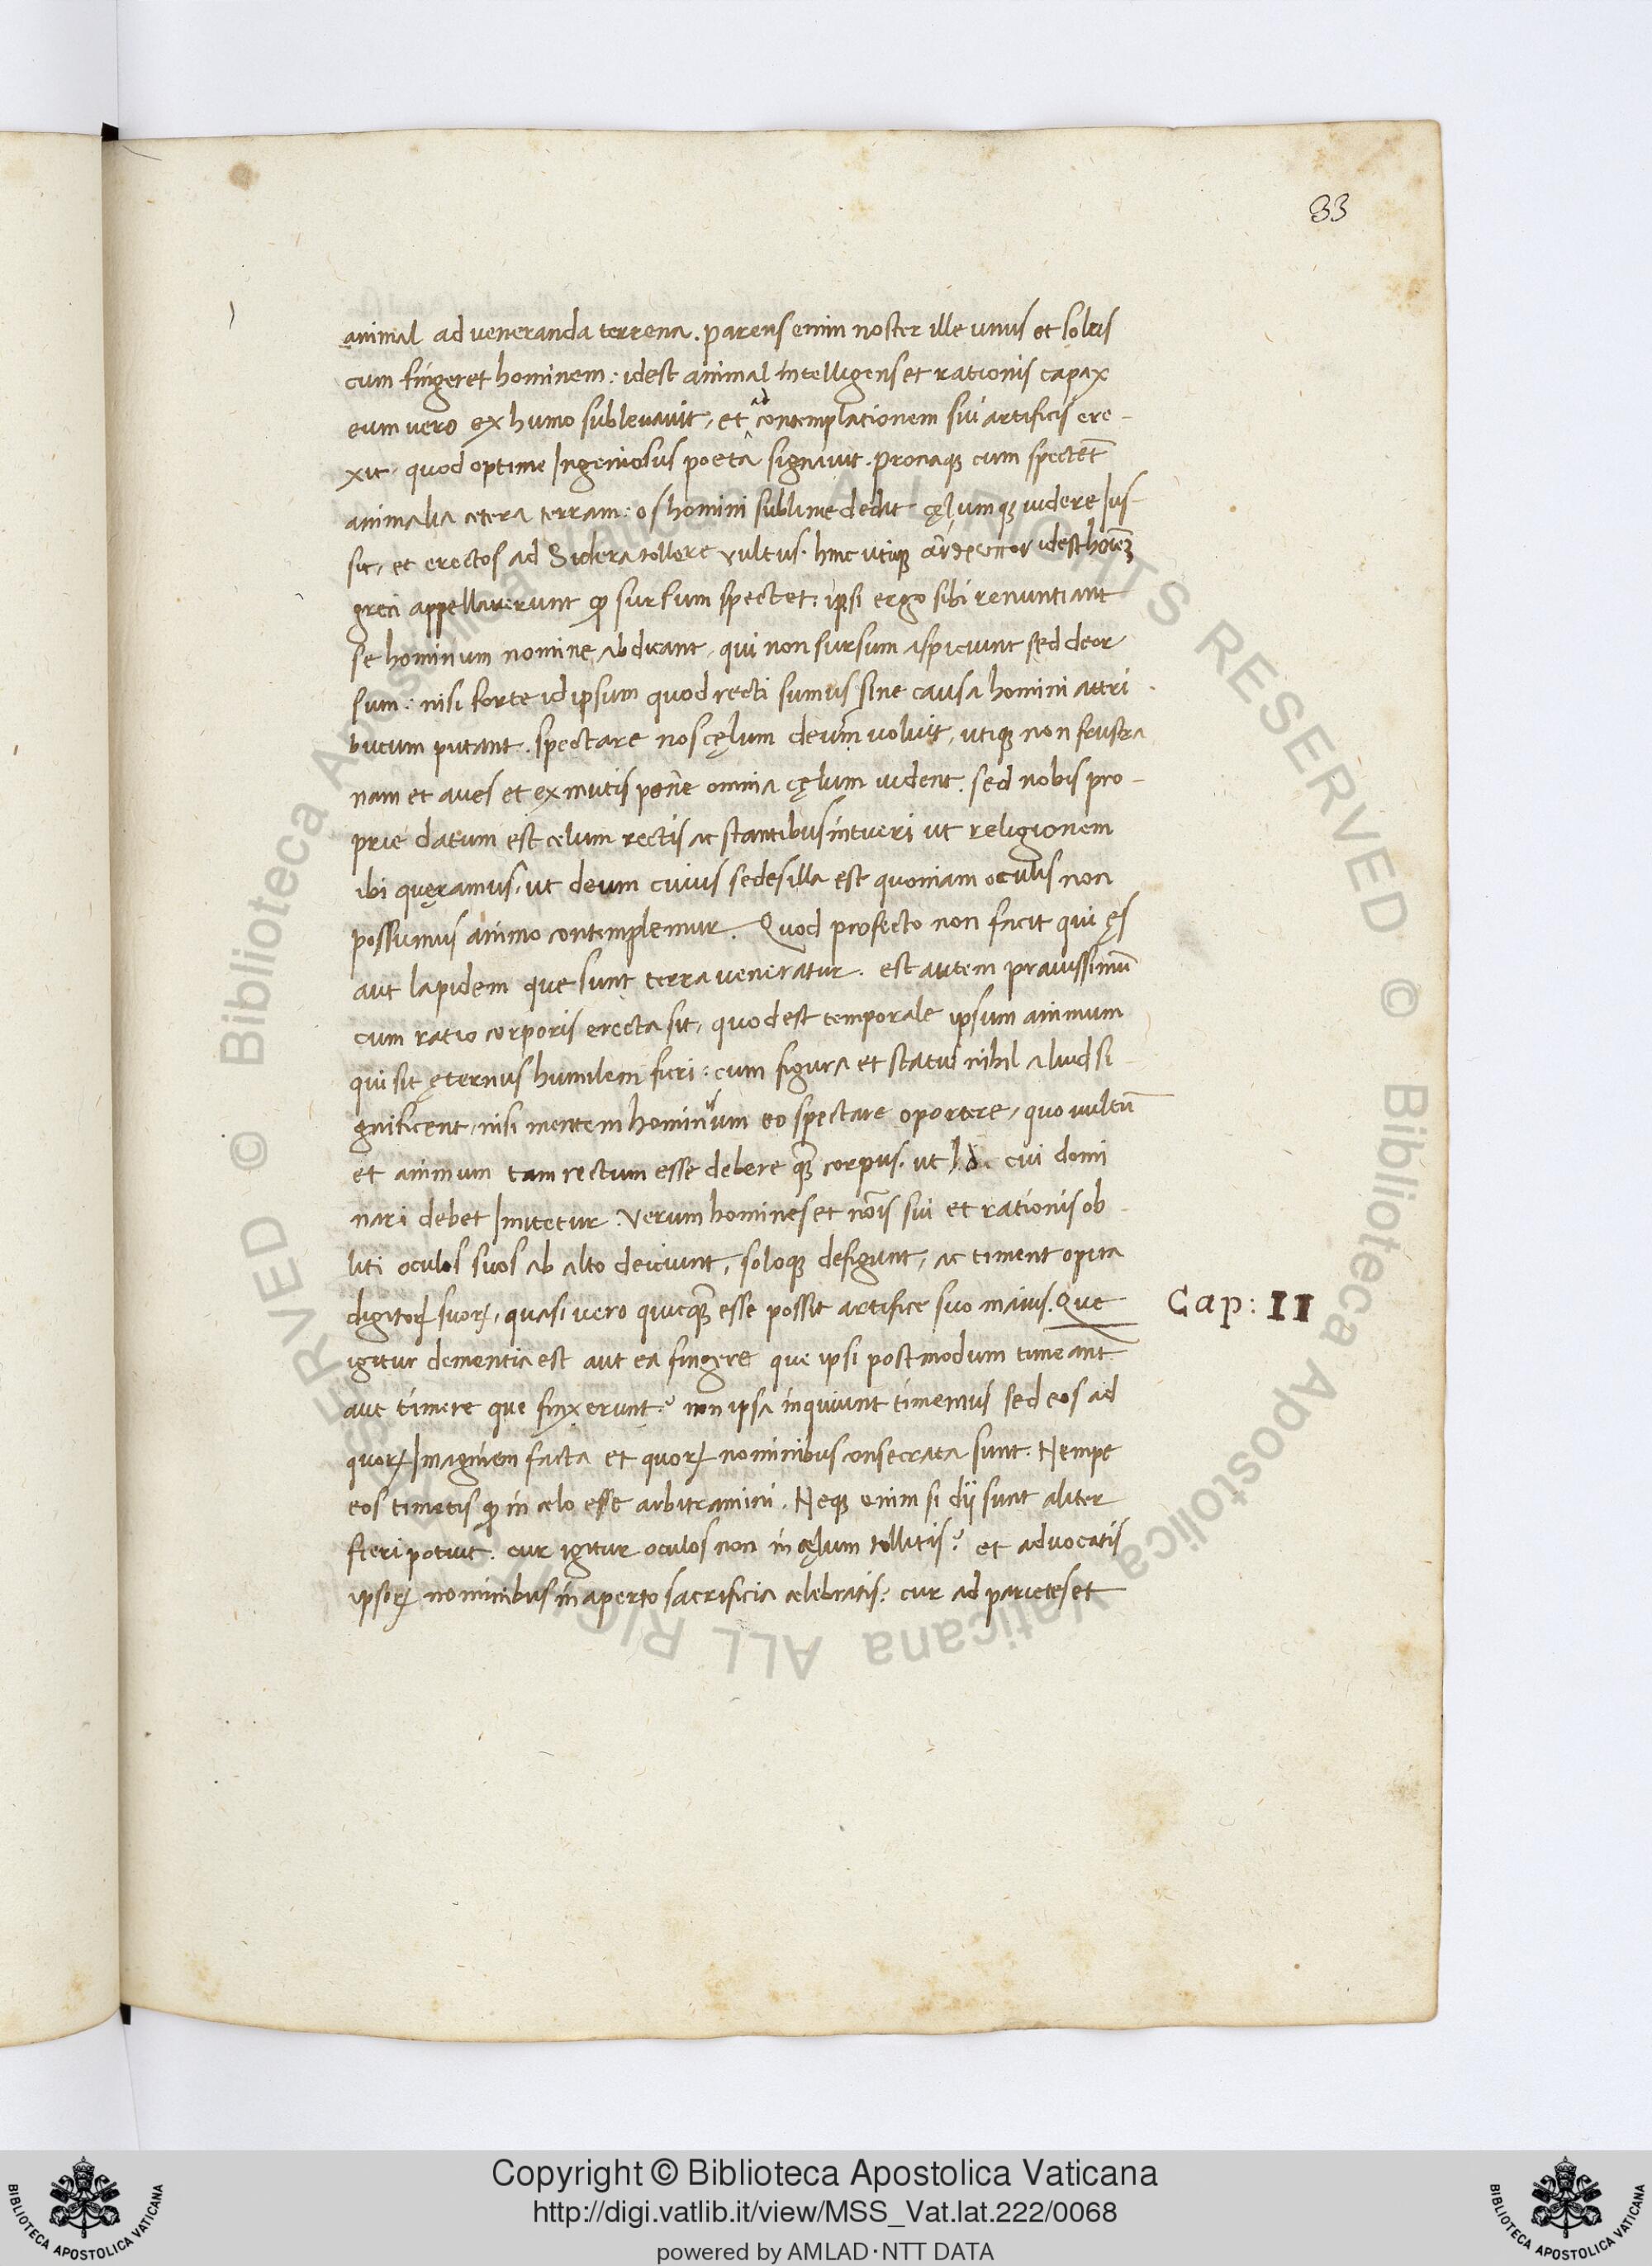 33
animal ad veneranda terrena. parens enim noster ille unus et solus
cum fingeret hominem: idest animal intelligens et rationis capax
eum vero ex humo sublevavit, et ad contemplationem sui artificis ere-
xit. quod optime Ingeniosus poeta signavit. Pronaqꝫ cum spectēt
animalia cetera terram: os homini sublime dedit cęlumqꝫ videre Jus-
sit, et erectos ad Sidera tollere vultus. hinc utiqꝫ idest
greci appellaverunt ꝙ sursum spectet: ipsi ergo sibi renuntiant
se hominum nomine abdicant, qui non sursum aspiciunt sed deor
sum: nisi forte id ipsum quod recti sumus sine causa homini attri-
butum putant. spectare nos cęlum deum voluit, utiqꝫ non frustra
nam et aves et ex mutis pene omnia cęlum vident. sed nobis pro-
prie datum est celum rectis ac stantibus intueri ut religionem
ibi quęramus, ut deum cuius sedes illa est quoniam oculis non
possumus animo contemplemur. Quod profecto non facit qui ęs
aut lapidem que sunt terra veneratur. est autem pravissimū
cum ratio corporis erecta sit, quod est temporale ipsum animum
qui sit ęternus humilem fieri: cum figura et status nihil aliud si-
gnificent, nisi mentem hominum eo spectare oportere, quo vultū
et animum tam rectum esse debere qꝫ corpus. ut cui domi
nari debet Imitetur. Verum homines et nōis sui et rationis ob-
liti oculos suos ab alto deiciunt, soloqꝫ defigunt, ac timent opera
digitoꝝ suoꝝ, quasi vero quicqꝫ esse possit artifice suo maius. Que
Cap: II
igitur dementia est aut ea fingere que ipsi postmodum timeant
aut timere que finxerunt? non ipsa inquiunt timemus sed eos ad
quoꝝ Imaginem facta et quoꝝ nominibus consecrata sunt. Nempe
eos timetis ꝙ in celo esse arbitramini. Neqꝫ enim si dij sunt aliter
fieri potuit. cur igitur oculos non in cęlum tollitis? et advocatis
ipsoꝝ nominibus in aperto sacrificia celebratis? cur ad parietes et
© Biblioteca Apostolica Vaticana ALL RIGHTS RESERVED © Biblioteca Apostolica Vaticana ALL RIGHTS RESERVED
BIBLIOTECA APOSTOLICA VATICANA
Copyright © Biblioteca Apostolica Vaticana
http://digi.vatlib.it/view/MSS_Vat.lat.222/0068
powered by AMLAD·NTT DATA
BIBLIOTECA APOSTOLICA VATICANA